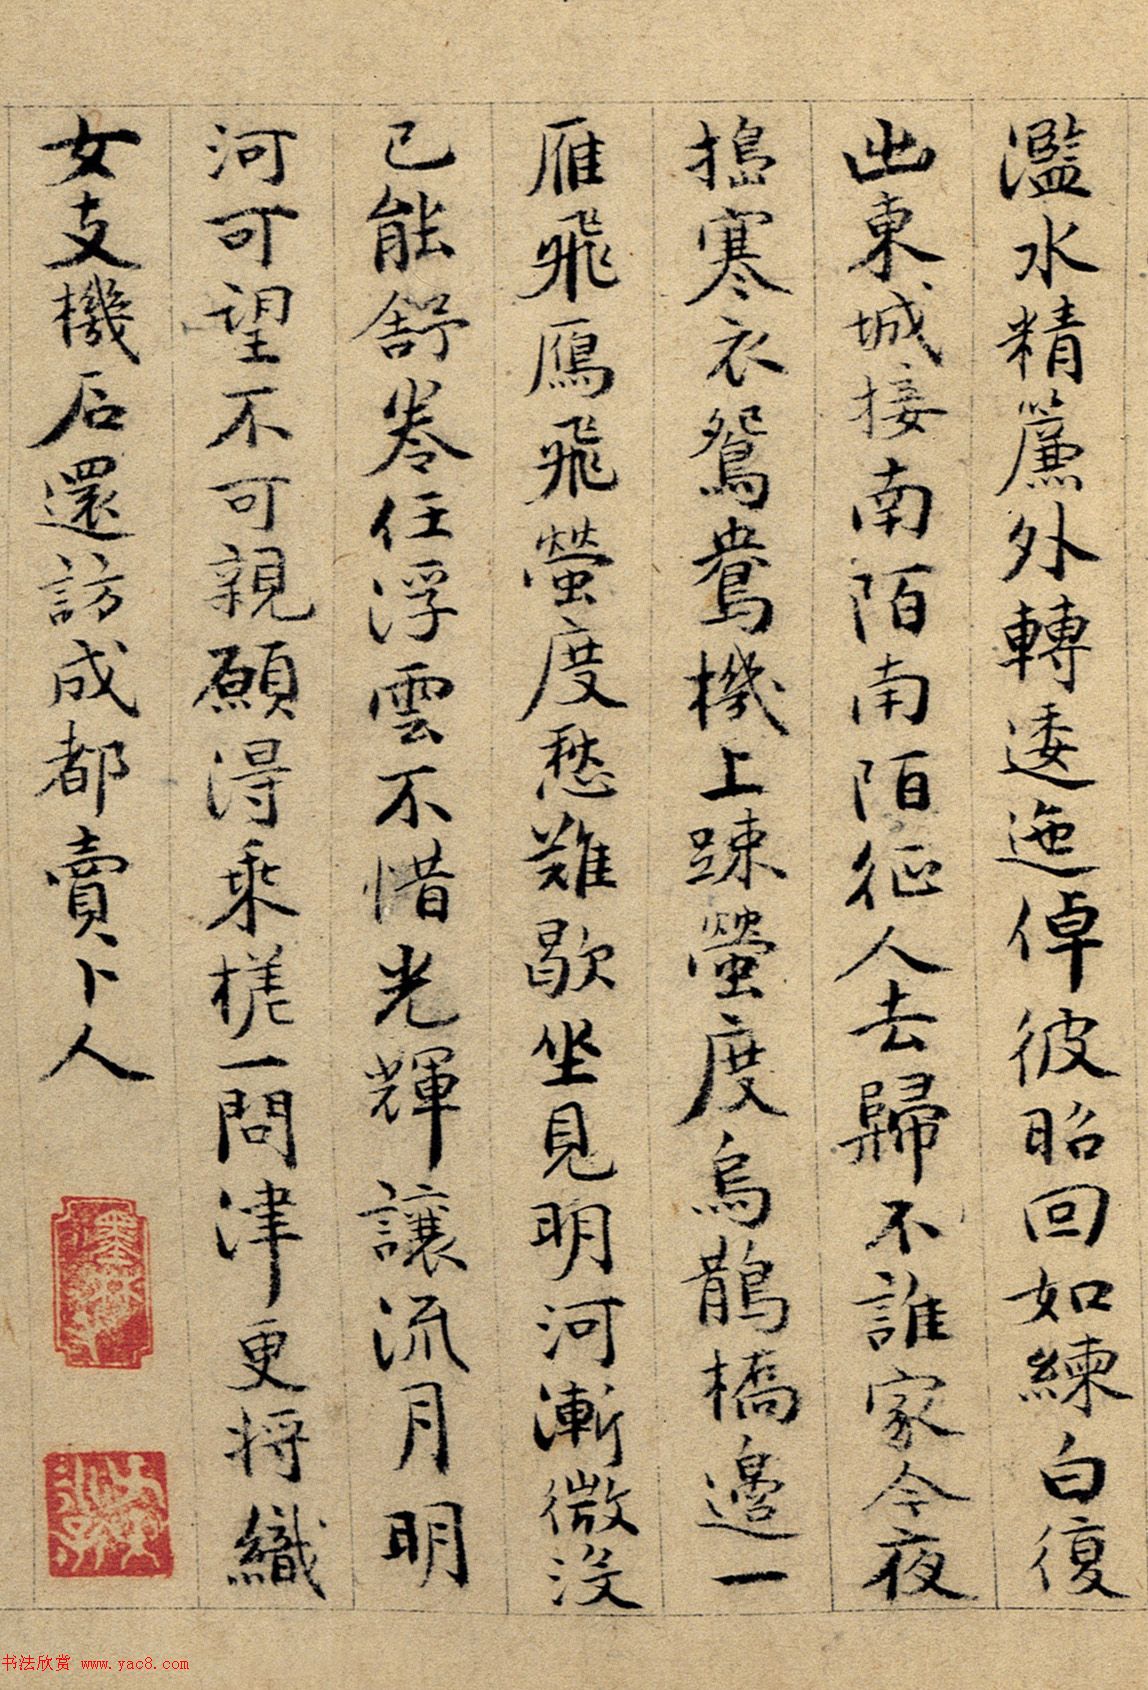 濫水精簾外轉逶迤倬彼昭回如練白復
出東城接南陌南陌征人去歸不誰家今夜
搗寒衣鴛鴦機上踈螢度烏鵲橋邊一
雁飛鴈飛螢度愁難歇坐見明河漸微没
已能舒卷任浮雲不惜光輝讓流月明
河可望不可親願得乘槎一問津更將織
女支機石還訪成都賣卜人
书法欣赏 www.yac8.com